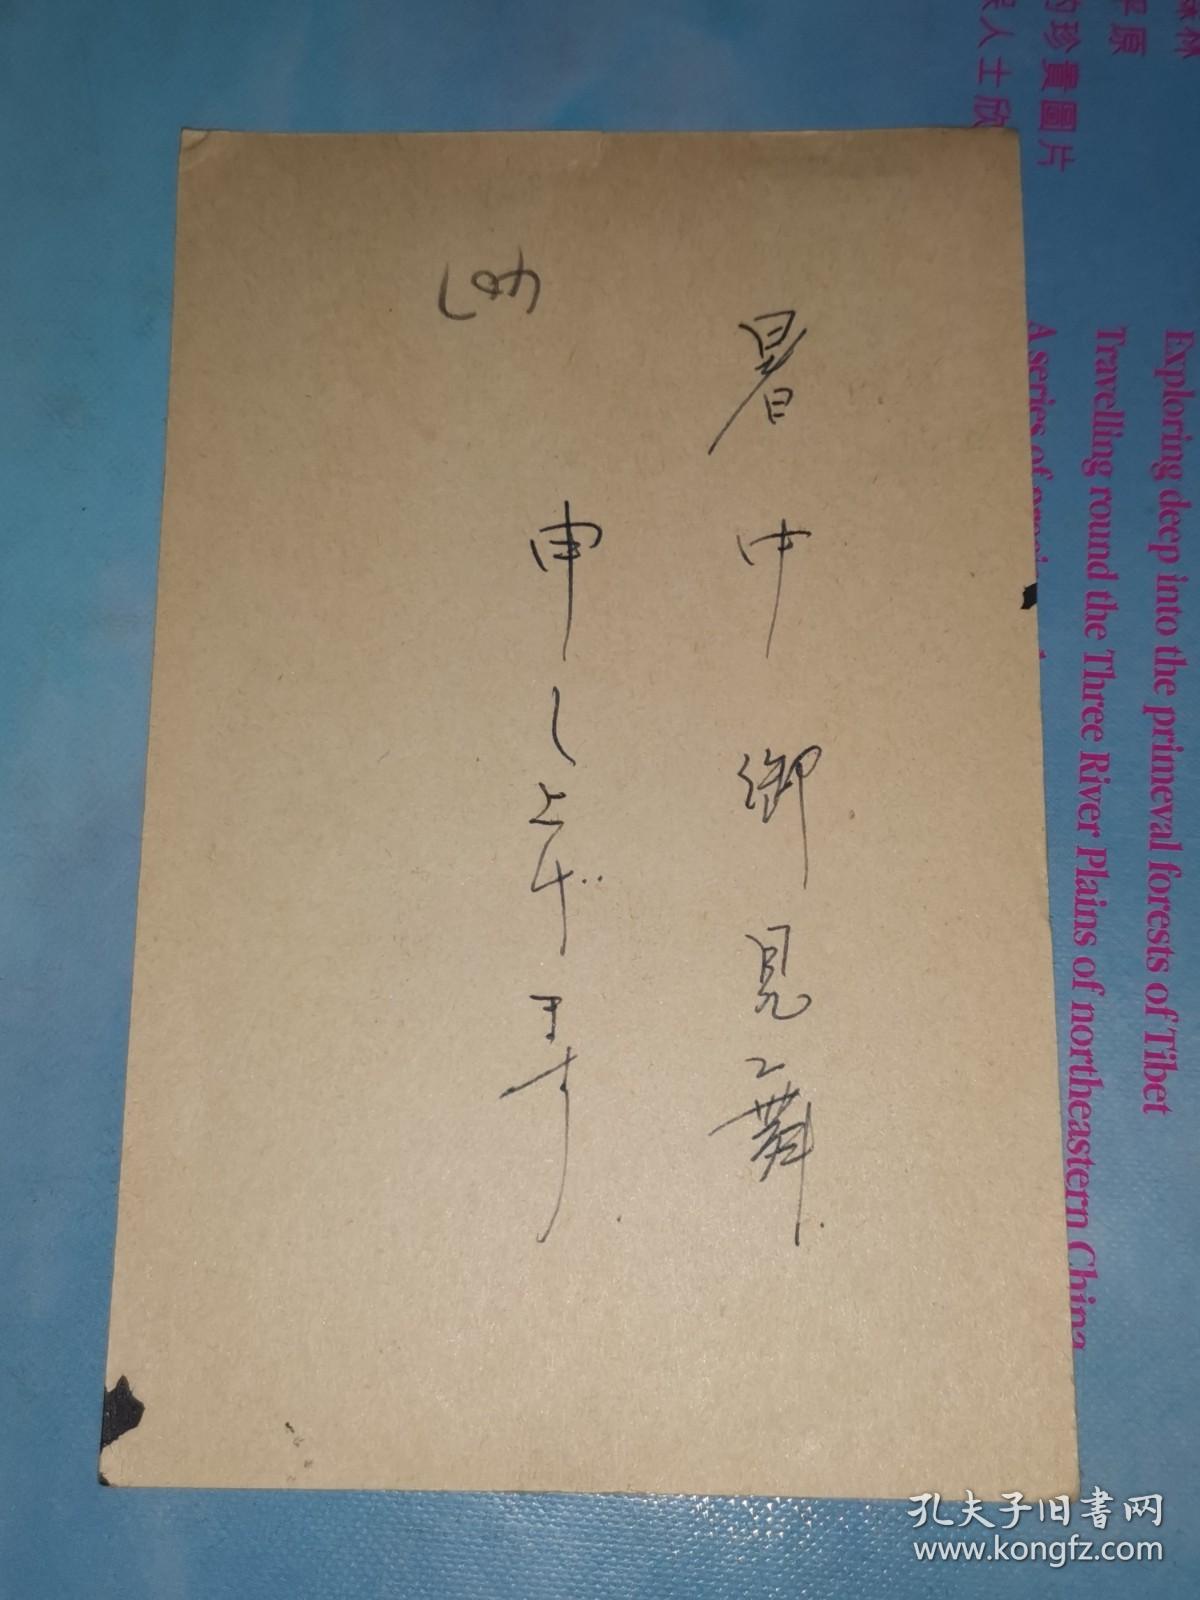 暑中御見舞
申し上げます
森林
平原
的珍貴圖片
人士欣
Exploring deep into the primeval forests of Tibet
Travelling round the Three River Plains of northeastern China
A series of
孔夫子旧书网
www.kongfz.com